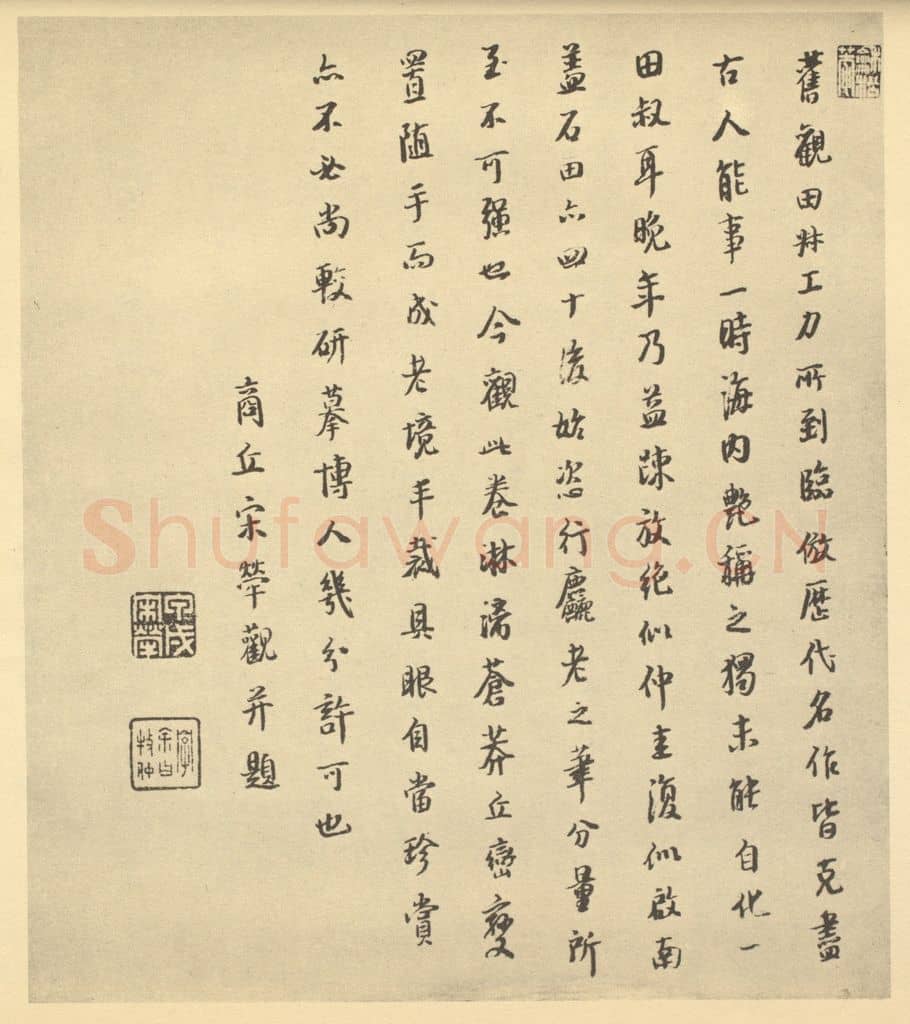 舊觀田叔工力所到臨倣歷代名作皆克盡
古人能事一時海內艷稱之獨未能自化一
田叔耳晚年乃益疎放絕似仲圭復似啟南
蓋石田亦四十後始恣行麤老之筆分量所
至不可強也今觀此卷淋漓蒼莽丘巒變
置隨手而成老境丰裁具眼自當珍賞
亦不必尚較研摹博人幾分許可也
商丘宋犖觀并題
Shufawang.CN